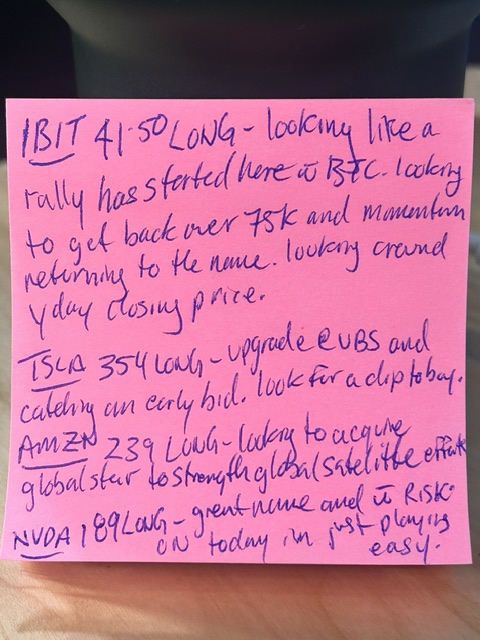 IBIT 41.50 LONG - looking like a
rally has started here w BTC. looking
to get back over 75K and momentum
returning to the name. looking around
yday closing price.
TSLA 354 LONG - upgrade @ UBS and
catching an early bid. look for a dip to buy.
AMZN 239 LONG - looking to acquire
global star to strength global satelitte efforts
NVDA 189 LONG - great name and w RISK
ON today im just playing
easy.